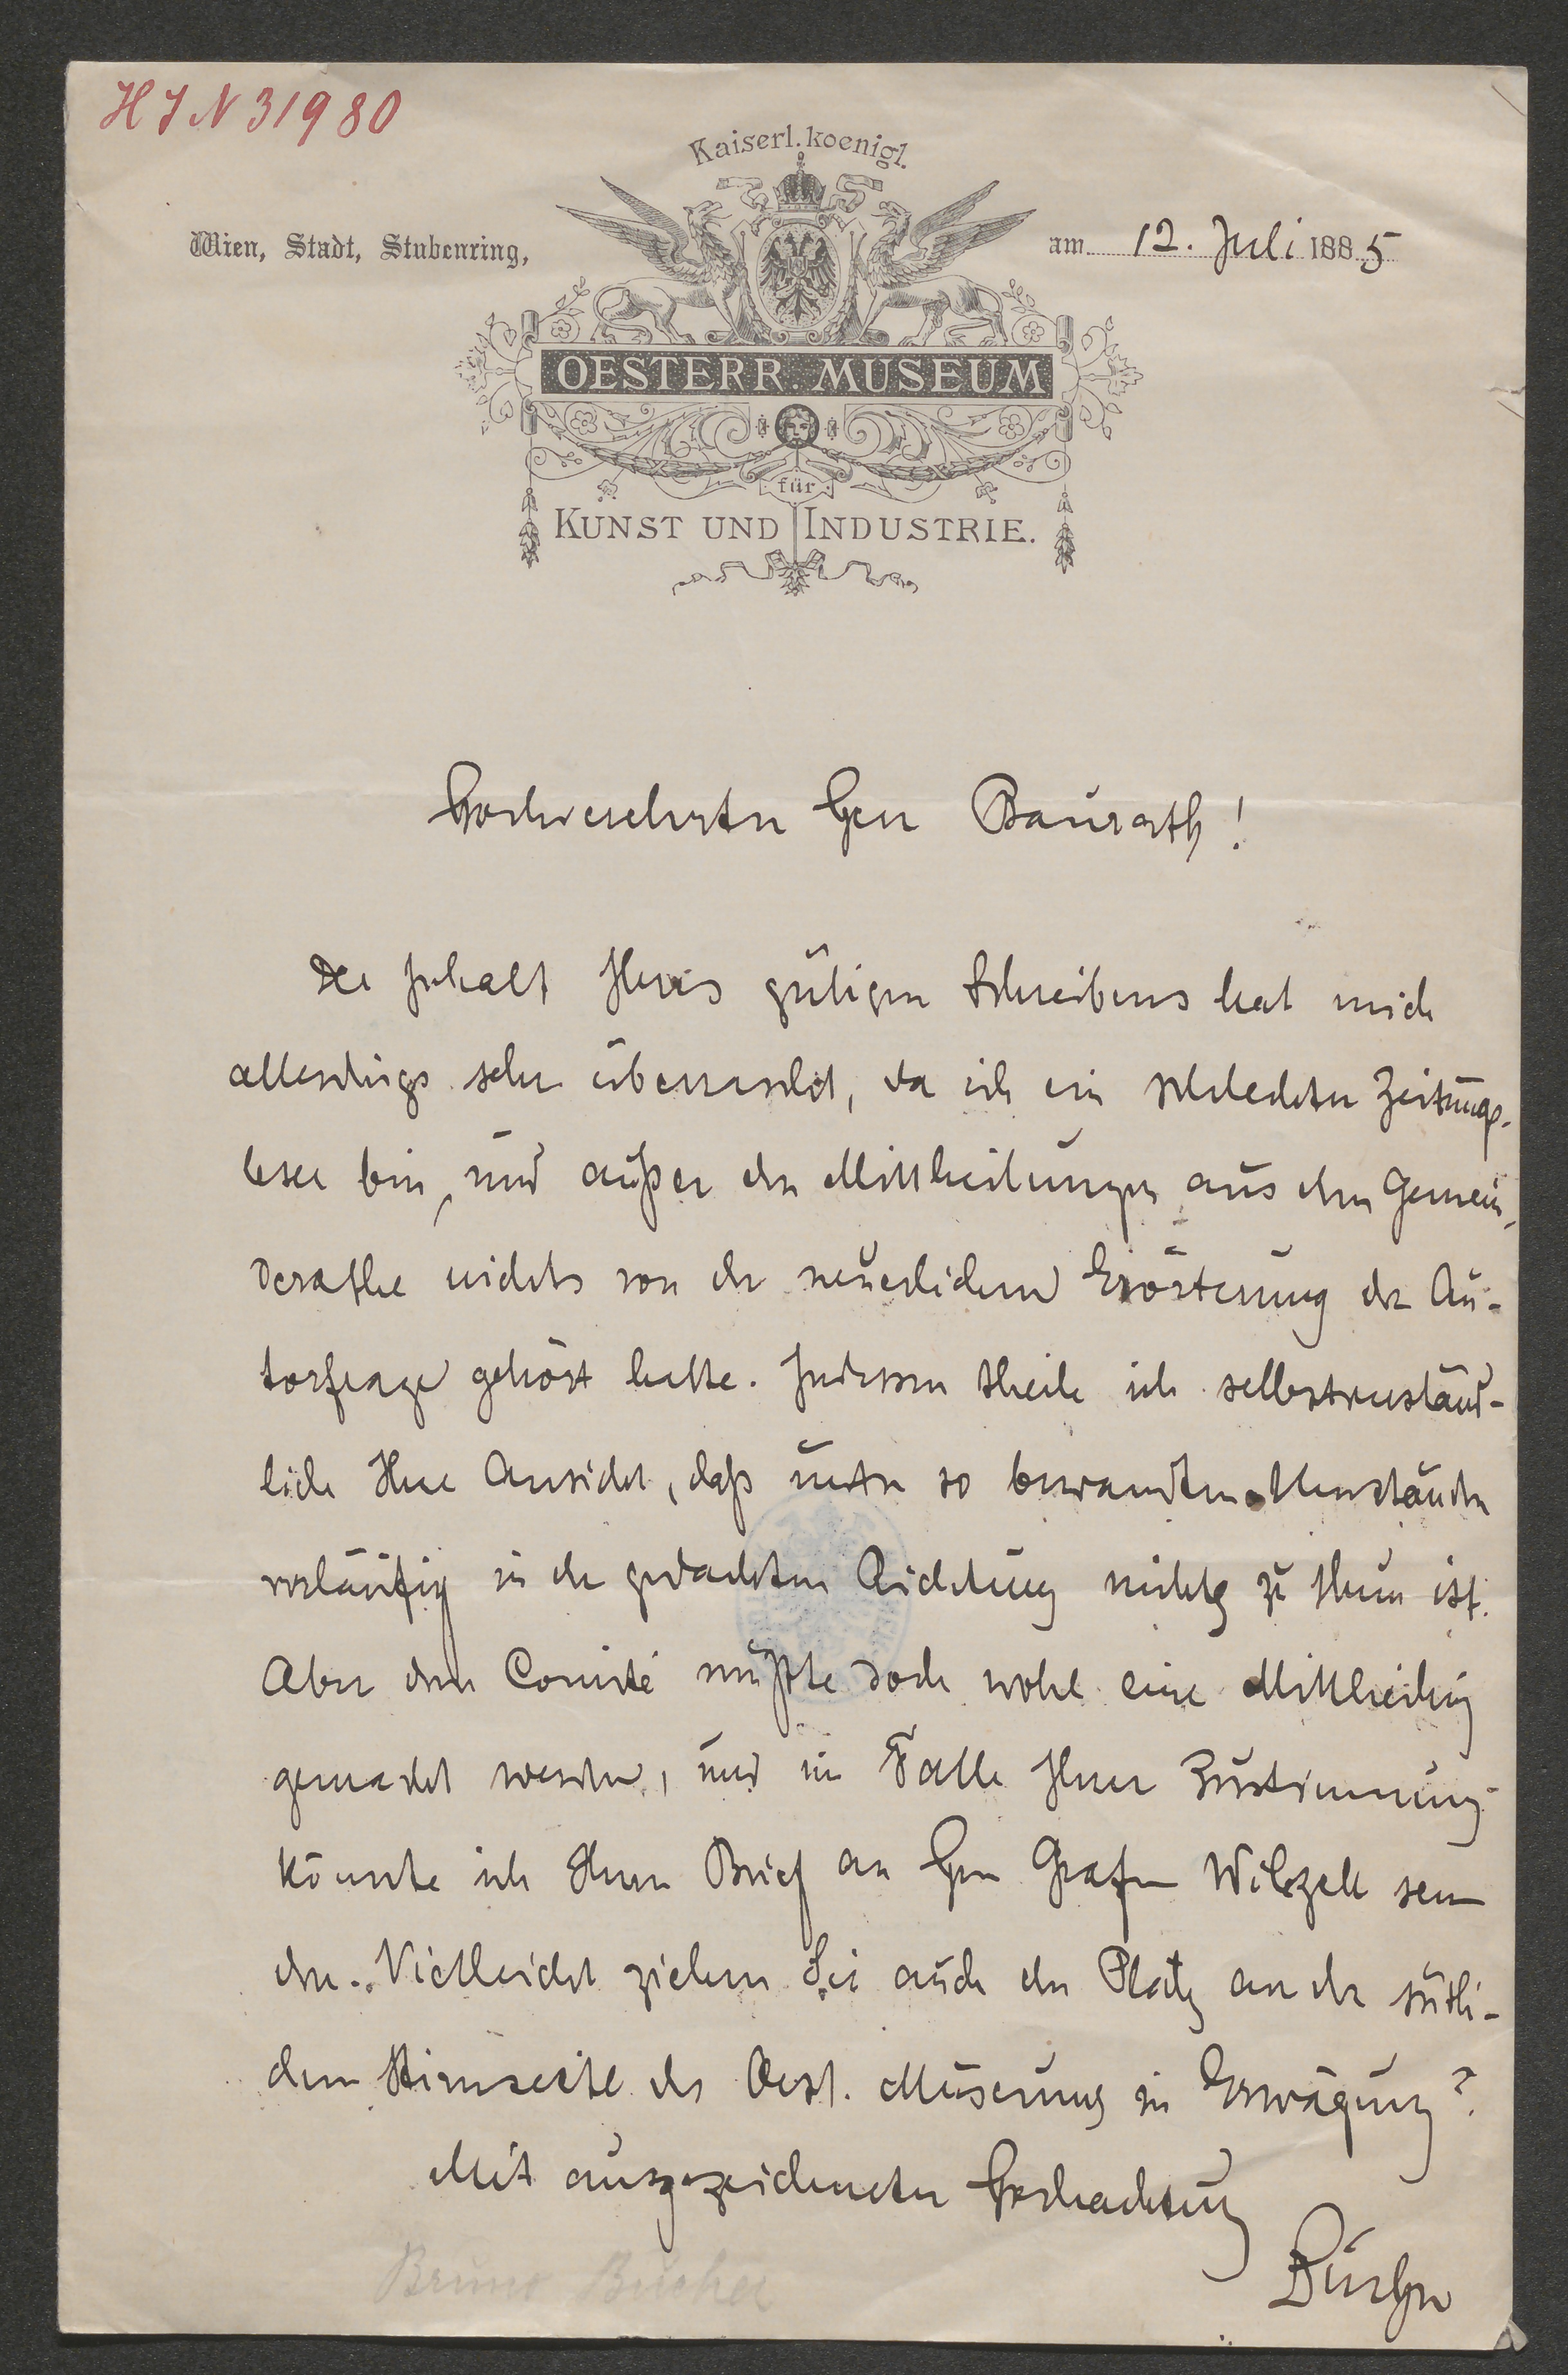 HJN 31980
Kaiserl. koenigl.
Wien, Stadt, Stubenring,
am 12. Juli 1885
OESTERR. MUSEUM
für
KUNST UND INDUSTRIE.
Hochverehrter Herr Baurath!
Der Inhalt Ihres gütigen Schreibens hat mich
allerdings sehr überrascht, da ich ein schlechter Zeitungs-
leser bin, und außer den Mittheilungen aus dem Gemein-
derathe nichts von der neuerlichen Erörterung der Au-
torfrage gehört hatte. Indessen theile ich selbstverständ-
lich Ihre Ansicht, daß unter so bewandten Umständen
vorläufig in der gedachten Richtung nichts zu thun ist.
Aber dem Comité müßte doch wohl eine Mittheilung
gemacht werden, und im Falle Ihrer Zustimmung
könnte ich Ihren Brief an Hrn Grafen Wilczek sen
den. Vielleicht ziehen Sie auch den Platz an der südli-
chen Stirnseite des Oest. Museums in Erwägung?
Mit ausgezeichneter Hochachtung
Bucher
Bruno Bucher